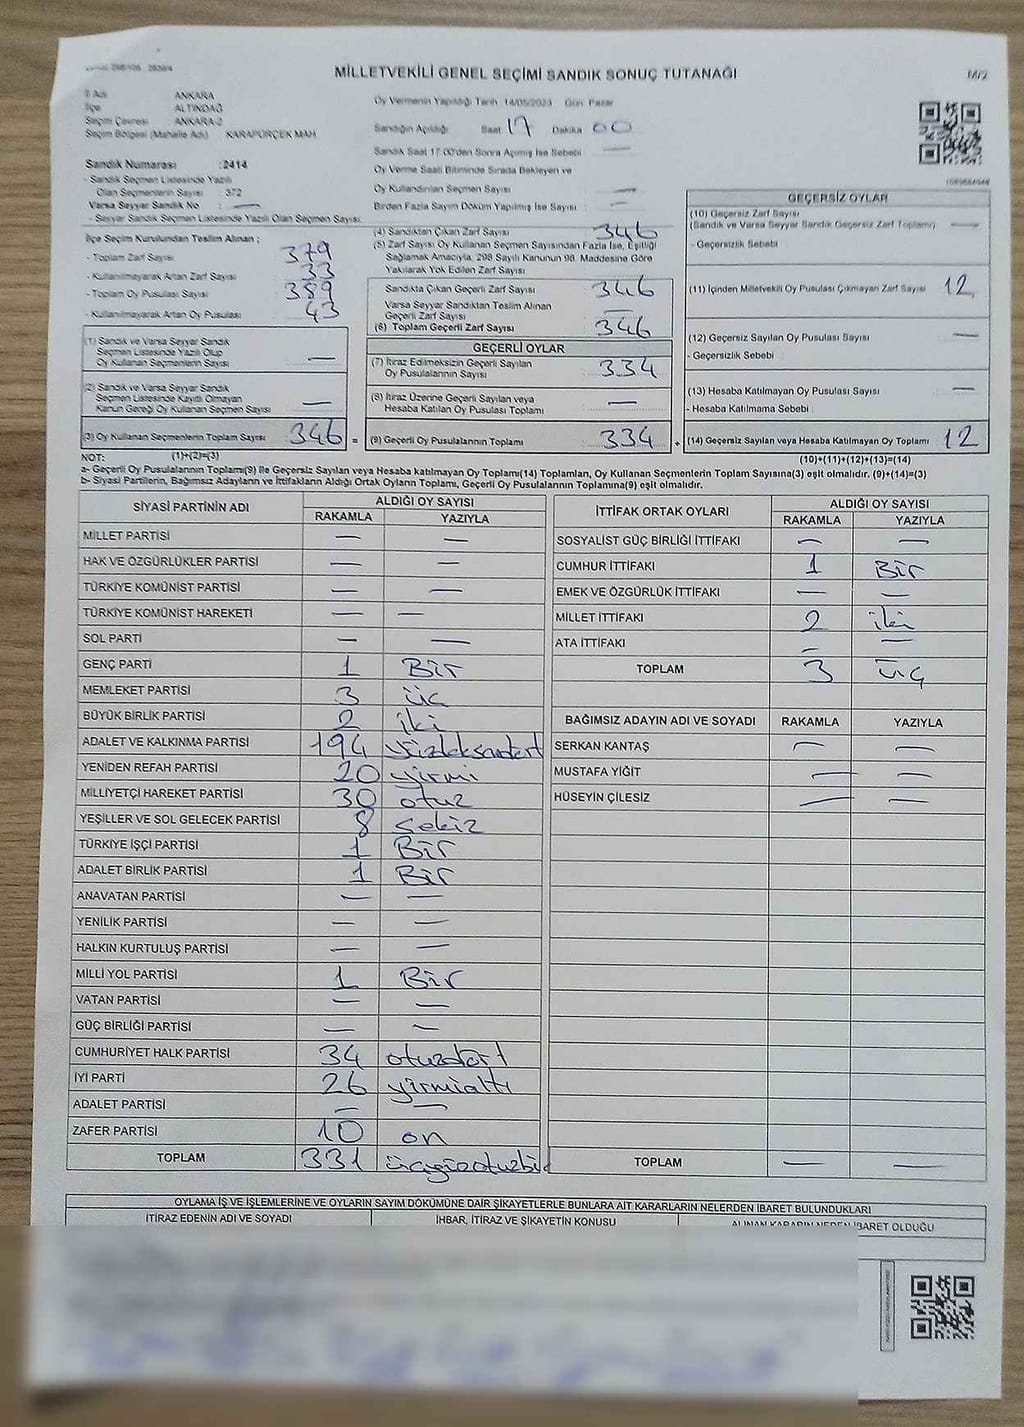 MİLLETVEKİLİ GENEL SEÇİMİ SANDIK SONUÇ TUTANAĞI
İl Adı ANKARA
İlçe ALTINDAĞ
Seçim Çevresi ANKARA-2
Seçim Bölgesi (Mahalle Adı) KARAPÜRÇEK MAH.
Sandık Numarası : 2414
- Sandık Seçmen Listesinde Yazılı
Olan Seçmenlerin Sayısı : 372
Varsa Seyyar Sandık No : —
- Seyyar Sandık Seçmen Listesinde Yazılı Olan Seçmen Sayısı:
Oy Vermenin Yapıldığı Tarih 14/05/2023 Gün: Pazar
Sandığın Açıldığı Saat 17 Dakika 00
Sandık Saat 17.00'den Sonra Açılmış İse Sebebi —
Oy Verme Saati Bitiminde Sırada Bekleyen ve
Oy Kullandırılan Seçmen Sayısı —
Birden Fazla Sayım Döküm Yapılmış İse Sayısı —
İlçe Seçim Kurulundan Teslim Alınan ;
- Toplam Zarf Sayısı 379
- Kullanılmayarak Artan Zarf Sayısı 33
- Toplam Oy Pusulası Sayısı 389
- Kullanılmayarak Artan Oy Pusulası 43
(1) Sandık ve Varsa Seyyar Sandık
Seçmen Listesinde Yazılı Olup
Oy Kullanan Seçmenlerin Sayısı —
(2) Sandık ve Varsa Seyyar Sandık
Seçmen Listesinde Kayıtlı Olmayan
Kanun Gereği Oy Kullanan Seçmen Sayısı —
(3) Oy Kullanan Seçmenlerin Toplam Sayısı 346 =
(4) Sandıktan Çıkan Zarf Sayısı 346
(5) Zarf Sayısı Oy Kullanan Seçmen Sayısından Fazla İse, Eşitliği
Sağlamak Amacıyla, 298 Sayılı Kanunun 98. Maddesine Göre
Yakılarak Yok Edilen Zarf Sayısı
Sandıkta Çıkan Geçerli Zarf Sayısı 346
Varsa Seyyar Sandıktan Teslim Alınan
Geçerli Zarf Sayısı —
(6) Toplam Geçerli Zarf Sayısı 346
GEÇERLİ OYLAR
(7) İtiraz Edilmeksizin Geçerli Sayılan
Oy Pusulalarının Sayısı 334
(8) İtiraz Üzerine Geçerli Sayılan veya
Hesaba Katılan Oy Pusulası Toplamı —
(9) Geçerli Oy Pusulalarının Toplamı 334 +
GEÇERSİZ OYLAR
(10) Geçersiz Zarf Sayısı
(Sandık ve Varsa Seyyar Sandık Geçersiz Zarf Toplamı) —
- Geçersizlik Sebebi
(11) İçinden Milletvekili Oy Pusulası Çıkmayan Zarf Sayısı 12
(12) Geçersiz Sayılan Oy Pusulası Sayısı —
- Geçersizlik Sebebi
(13) Hesaba Katılmayan Oy Pusulası Sayısı —
- Hesaba Katılmama Sebebi
(14) Geçersiz Sayılan veya Hesaba Katılmayan Oy Toplamı 12
NOT: (1)+(2)=(3) (10)+(11)+(12)+(13)=(14)
a- Geçerli Oy Pusulalarının Toplamı(9) ile Geçersiz Sayılan veya Hesaba katılmayan Oy Toplamı(14) Toplamları, Oy Kullanan Seçmenlerin Toplam Sayısına(3) eşit olmalıdır. (9)+(14)=(3)
b- Siyasi Partilerin, Bağımsız Adayların ve İttifakların Aldığı Ortak Oyların Toplamı, Geçerli Oy Pusulalarının Toplamına(9) eşit olmalıdır.
SİYASİ PARTİNİN ADI ALDIĞI OY SAYISI
RAKAMLA YAZIYLA
MİLLET PARTİSİ — —
HAK VE ÖZGÜRLÜKLER PARTİSİ — —
TÜRKİYE KOMÜNİST PARTİSİ — —
TÜRKİYE KOMÜNİST HAREKETİ — —
SOL PARTİ — —
GENÇ PARTİ 1 Bir
MEMLEKET PARTİSİ 3 üç
BÜYÜK BİRLİK PARTİSİ 2 iki
ADALET VE KALKINMA PARTİSİ 194 yüzdoksandört
YENİDEN REFAH PARTİSİ 20 yirmi
MİLLİYETÇİ HAREKET PARTİSİ 30 otuz
YEŞİLLER VE SOL GELECEK PARTİSİ 8 sekiz
TÜRKİYE İŞÇİ PARTİSİ 1 Bir
ADALET BİRLİK PARTİSİ 1 Bir
ANAVATAN PARTİSİ — —
YENİLİK PARTİSİ — —
HALKIN KURTULUŞ PARTİSİ — —
MİLLİ YOL PARTİSİ 1 Bir
VATAN PARTİSİ — —
GÜÇ BİRLİĞİ PARTİSİ — —
CUMHURİYET HALK PARTİSİ 34 otuzdört
İYİ PARTİ 26 yirmialtı
ADALET PARTİSİ — —
ZAFER PARTİSİ 10 on
TOPLAM 331 üçyüzotuzbir
İTTİFAK ORTAK OYLARI ALDIĞI OY SAYISI
RAKAMLA YAZIYLA
SOSYALİST GÜÇ BİRLİĞİ İTTİFAKI — —
CUMHUR İTTİFAKI 1 Bir
EMEK VE ÖZGÜRLÜK İTTİFAKI — —
MİLLET İTTİFAKI 2 iki
ATA İTTİFAKI — —
TOPLAM 3 üç
BAĞIMSIZ ADAYIN ADI VE SOYADI RAKAMLA YAZIYLA
SERKAN KANTAŞ — —
MUSTAFA YİĞİT — —
HÜSEYİN ÇİLESİZ — —
TOPLAM — —
OYLAMA İŞ VE İŞLEMLERİNE VE OYLARIN SAYIM DÖKÜMÜNE DAİR ŞİKAYETLERLE BUNLARA AİT KARARLARIN NELERDEN İBARET BULUNDUKLARI
İTİRAZ EDENİN ADI VE SOYADI İHBAR, İTİRAZ VE ŞİKAYETİN KONUSU ALINAN KARARIN NEDEN İBARET OLDUĞU